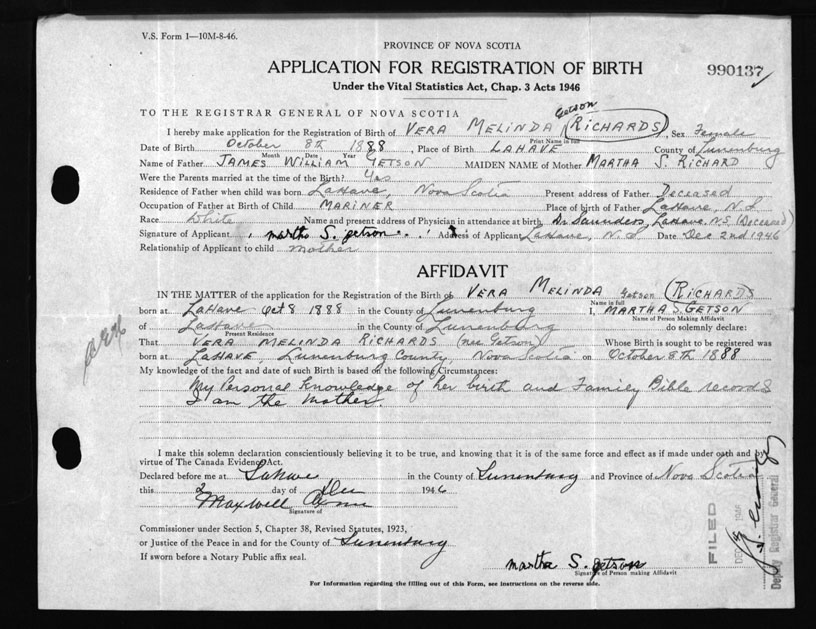 V.S. Form 1—10M-8-46.
PROVINCE OF NOVA SCOTIA
APPLICATION FOR REGISTRATION OF BIRTH
990137
Under the Vital Statistics Act, Chap. 3 Acts 1946
TO THE REGISTRAR GENERAL OF NOVA SCOTIA
Getson
I hereby make application for the Registration of Birth of VERA MELINDA (RICHARDS), Sex Female
Print Name in full
Date of Birth October 8th 1888, Place of Birth LAHAVE County of Lunenburg
Month Date Year
Name of Father JAMES WILLIAM GETSON MAIDEN NAME of Mother MARTHA S. RICHARD
Were the Parents married at the time of the Birth? Yes
Residence of Father when child was born LaHave, Nova Scotia Present address of Father Deceased
Occupation of Father at Birth of Child MARINER Place of birth of Father LaHave, N.S.
Race White Name and present address of Physician in attendance at birth Dr Saunders, LaHave, N.S. (Deceased)
Signature of Applicant martha S. getson Address of Applicant LaHave, N.S Date Dec 2nd 1946
Relationship of Applicant to child mother
AFFIDAVIT
IN THE MATTER of the application for the Registration of the Birth of VERA MELINDA Getson (RICHARDS
Name in full
born at LaHave Oct 8 1888 in the County of Lunenburg I, MARTHA S. GETSON
Name of Person Making Affidavit
of LaHave in the County of Lunenburg do solemnly declare:
Present Residence
That VERA MELINDA RICHARDS (nee Getson) Whose Birth is sought to be registered was
born at LAHAVE, Lunenburg County, Nova Scotia on October 8th 1888
My knowledge of the fact and date of such Birth is based on the following Circumstances:
My Personal knowledge of her birth and Family Bible records
I am the Mother.
I make this solemn declaration conscientiously believing it to be true, and knowing that it is of the same force and effect as if made under oath and by
virtue of The Canada Evidence Act.
Declared before me at LaHave in the County of Lunenburg and Province of Nova Scotia
this 2 day of Dec 1946
Maxwell
Signature of
Commissioner under Section 5, Chapter 38, Revised Statutes, 1923,
or Justice of the Peace in and for the County of Lunenburg
If sworn before a Notary Public affix seal.
martha S. getson
Signature of Person making Affidavit
For Information regarding the filling out of this Form, see instructions on the reverse side.
FILED
DEC 1946
Deputy Registrar General